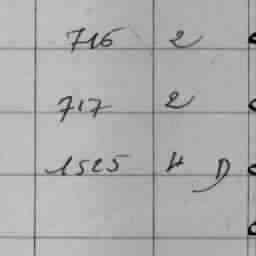 716 2
717 2
1525 4 D